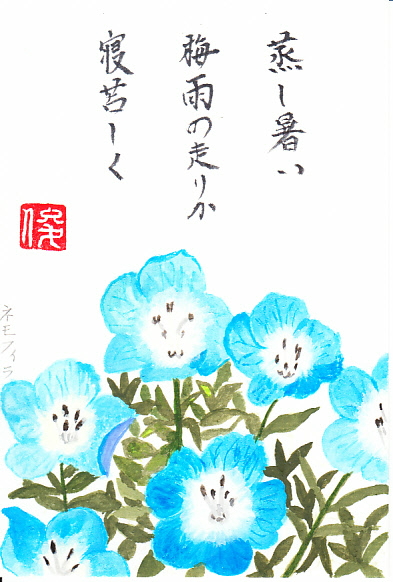 蒸し暑い
梅雨の走りか
寝苦しく
俊
ネモフィラ